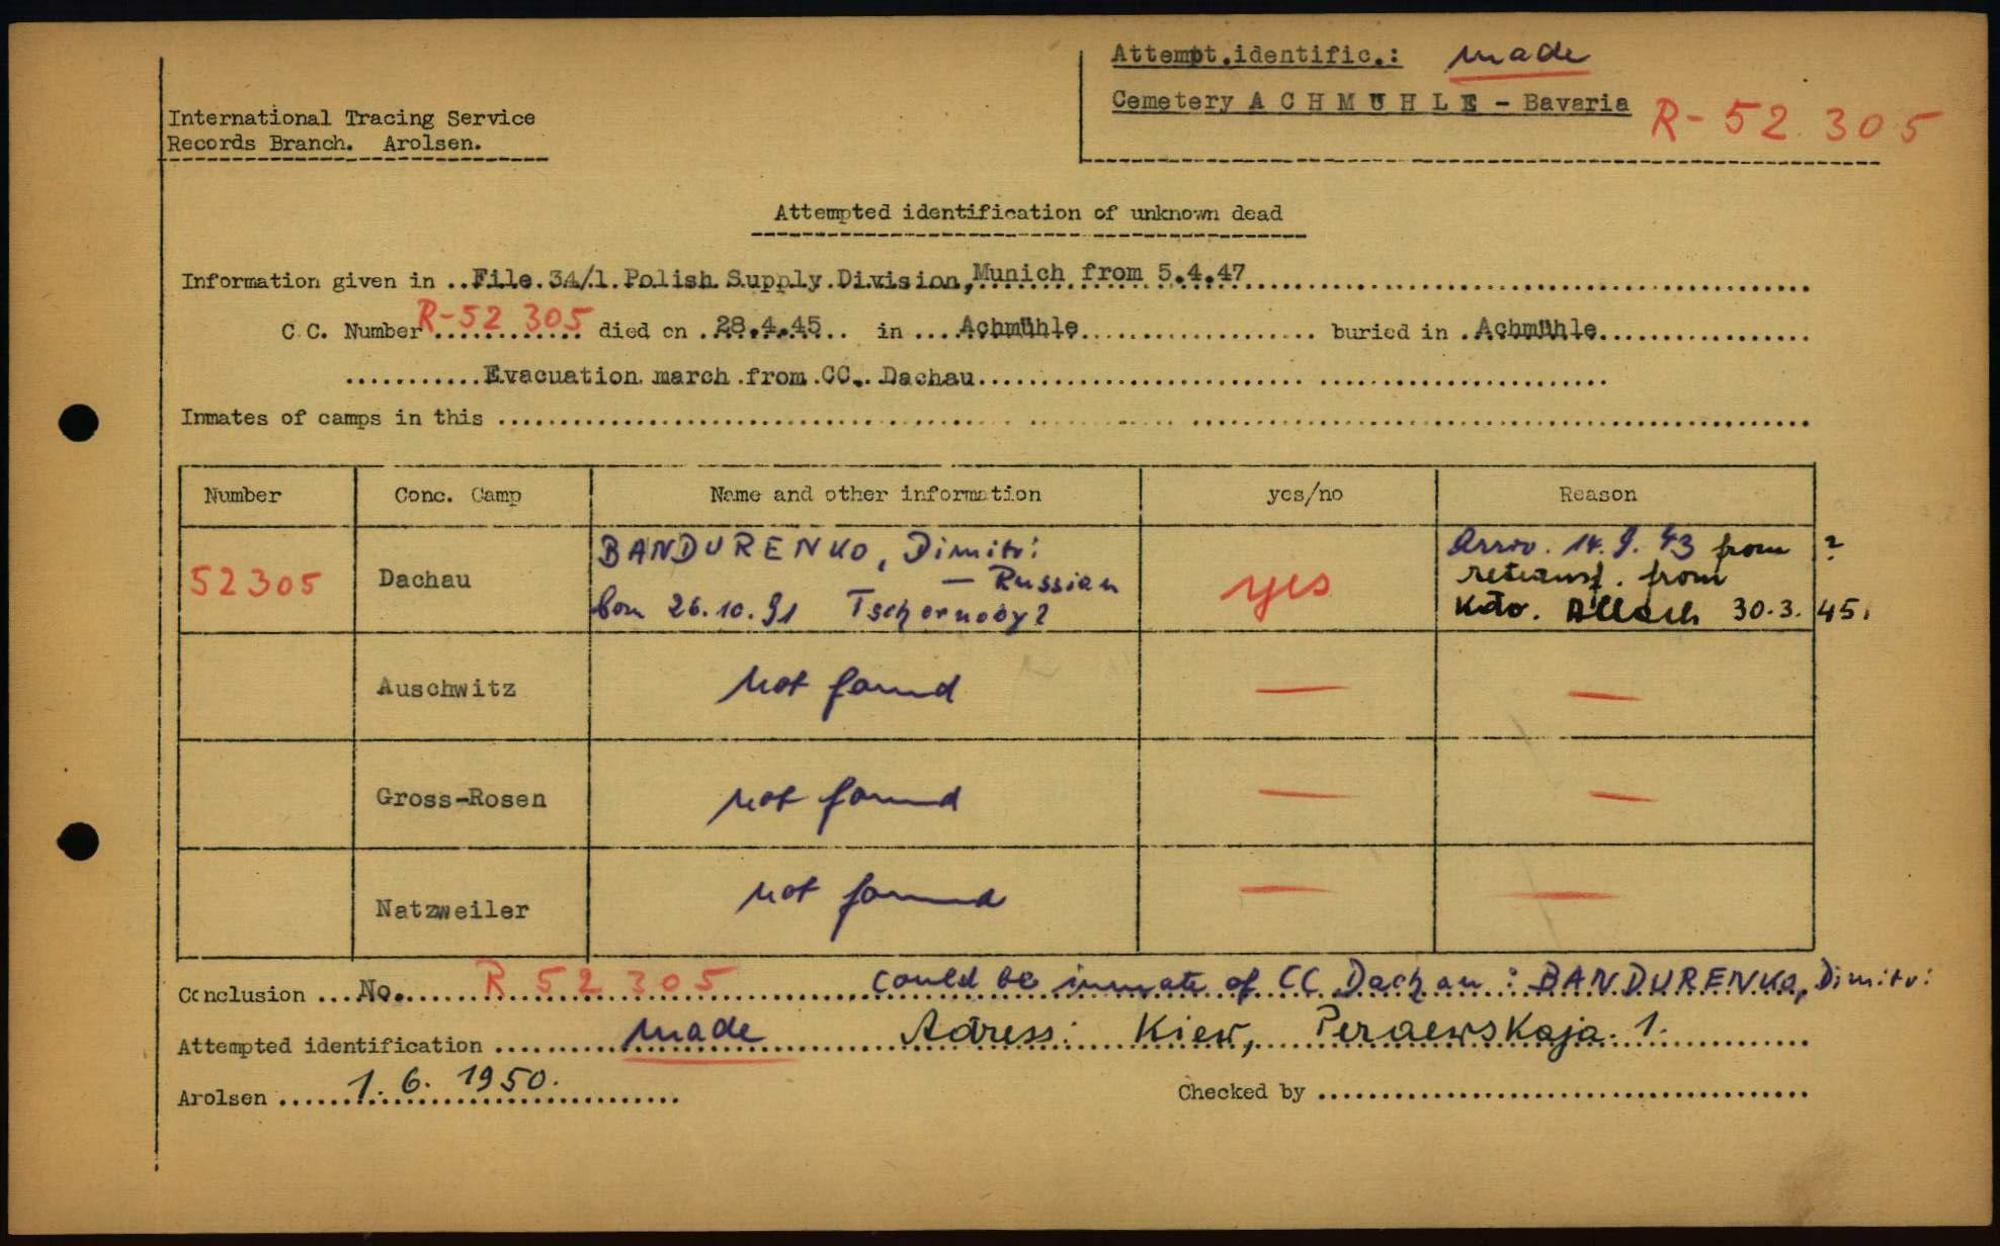 Attempt.identific.: made
Cemetery A C H M Ü H L E - Bavaria R-52 305
International Tracing Service
Records Branch. Arolsen.
Attempted identification of unknown dead
Information given in ..File.34/1.Polish Supply.Division,Munich from 5.4.47
C.C. Number R-52 305 died on .28.4.45.. in ...Achmühle buried in .Achmühle
Evacuation march.from.CC. Dachau
Inmates of camps in this
Number Conc. Camp Name and other information yes/no Reason
52305 Dachau BANDURENKO, Dimitri — Russian
born 26.10.91 Tschernoby?
yes
Arriv. 14.9.43 from ?
retransf. from
Kdo. Allach 30.3.45.
Auschwitz not found — —
Gross-Rosen not found — —
Natzweiler not found — —
Conclusion ...No. R 52 305 could be inmate of CC Dachau: BANDURENKO, Dimitri
Attempted identification made Adress: Kiew, 1.
Arolsen 1.6.1950. Checked by